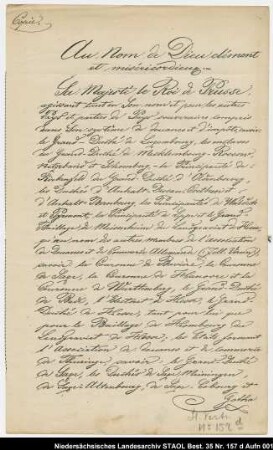 Copie
Au Nom de Dieu clément
et miséricordieux.
Sa Majesté le Roi de Prusse
agissant tant en Son nom et pour les autres
Pays et parties de Pays souverains compris
dans Son système de douanes et d'impôts, savoir
le Grand-Duché de Luxembourg, les enclaves
du Grand Duché de Mecklembourg, Rossow,
Netzeband et Schoenberg, la Principauté de
Birkenfeld du Grand Duché d'Oldenbourg,
les Duchés d'Anhalt-Dessau-Coethen et
d'Anhalt-Bernbourg, les Principautés de Waldeck
et Pyrmont, la Principauté de Lippe et le Grand-
Baillage de Meisenheim du Landgraviat de Hesse,
qu'au nom des autres membres de l'association
de Douanes et de Commerce Allemand (Zoll-Verein)
savoir, la Couronne de Bavière, la Couronne
de Saxe, la Couronne de Hanovre et la
Couronne de Württemberg, le Grand-Duché
de Bade, l'Electorat de Hesse, le Grand
Duché de Hesse, tant pour lui que
pour le Baillage de Hombourg du
Landgraviat de Hesse, les Etats formant
l'Association de douanes et de commerce
de Thuringe, savoir, le Grand-Duché
de Saxe, les Duchés de Saxe-Meiningen,
de Saxe-Altenbourg, de Saxe-Cobourg et
Gotha
Nr. 157 d
Niedersächsisches Landesarchiv STAOL Best. 35 Nr. 157 d Aufn 001